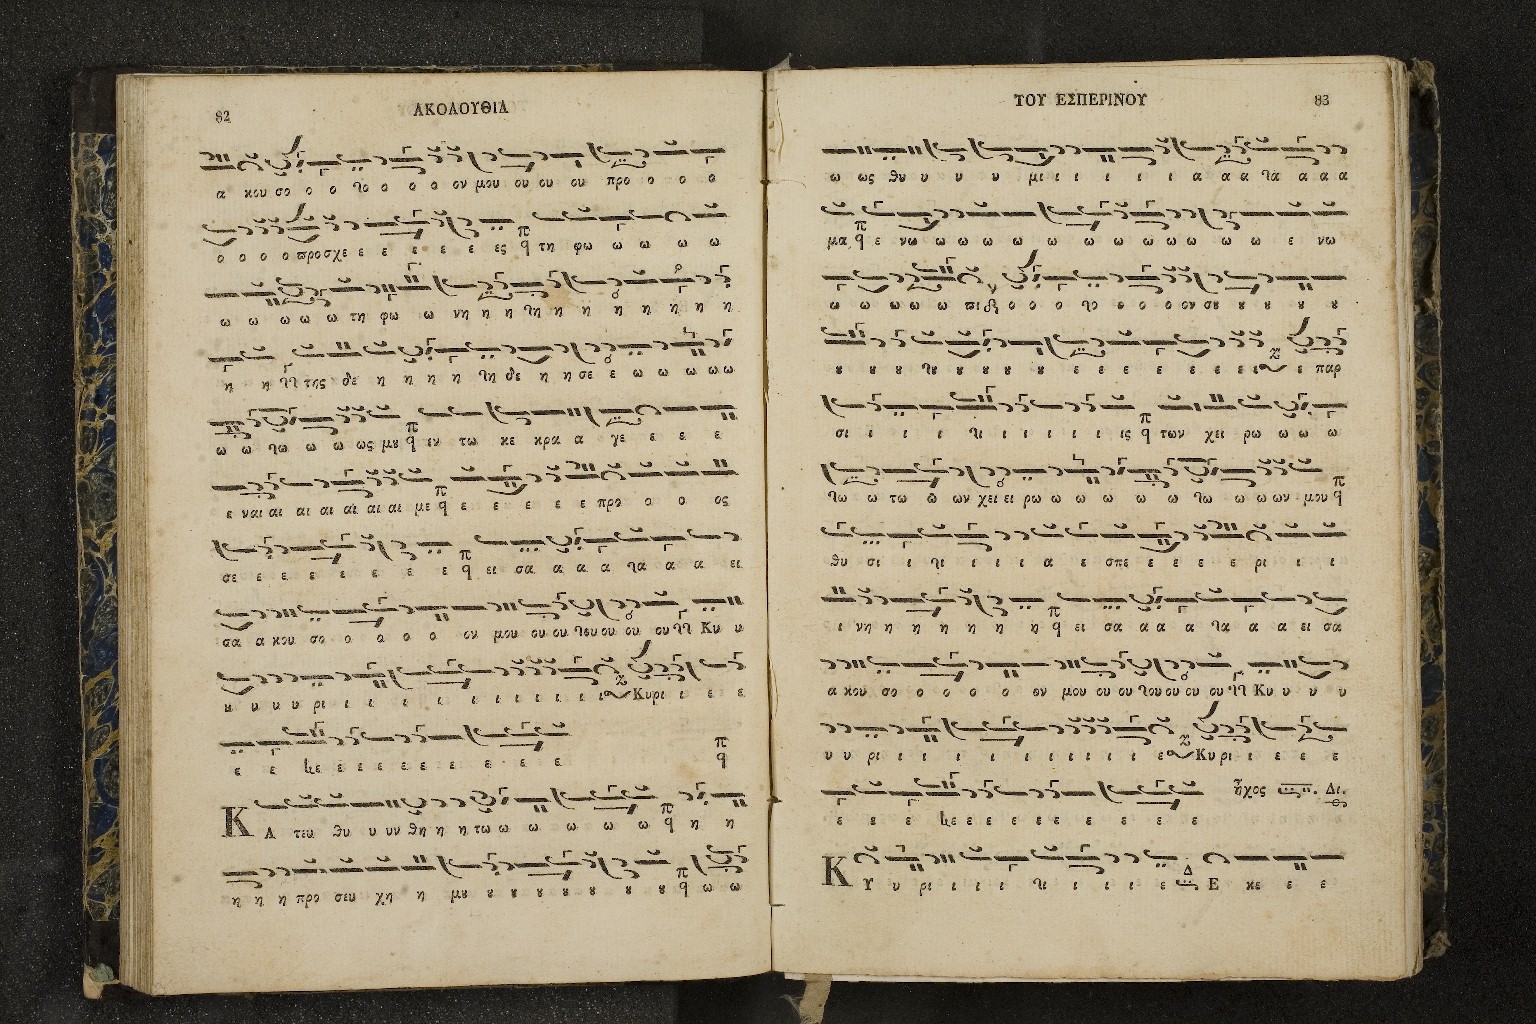 82 ΑΚΟΛΟΥΘΙΑ
α κου σο ο ο το ο ο ο ον μου ου ου ου προ ο ο ο
ο ο ο ο προσχε ε ε ε ε ε ε ες τη φω ω ω ω ω
ω ω ω ω ω τη φω ω νη η η τη η η η η η η η
η η της δε η η η η τη δε η η σε ε ω ω ω ω ω
ω ω τω ω ω ως μȣ εν τω κε κρα α γε ε ε ε
ε ναι αι αι αι αι αι αι με ε ε ε ε ε προ ο ο ος
σε ε ε ε ε ε ε ε ει σα α α α τα α α ει
σα α κου σο ο ο ο ο ον μου ου ου ου ου ου ου Κυ υ
υ υ υ υ ρι ι ι ι ι ι ι ι ι ι ι Κυρι ι ε ε
ε ε ε ε ε ε ε ε ε ε ε
Κ Α τευ θυ υ υν θη η η τω ω ω ω ω ω ω η η
η η η προ σευ χη η μȣ ȣ ȣ ȣ ȣ ȣ ȣ ȣ ω ω
ΤΟΥ ΕΣΠΕΡΙΝΟΥ 83
ω ως θυ υ υ υ μι ι ι ι ι ι α α α τα α α α
μα ε νω ω ω ω ω ω ω ω ω ω ω ω ε νω
ω ω ω ω ω πι ο ο ο το ο ο ο ον σȣ ȣ ȣ ȣ ȣ
ȣ ȣ ȣ ȣ ȣ ȣ ȣ ȣ ε ε ε ε ε ε ε ει ε παρ
σι ι ι ι ι τι ι ι ι ι ι ις των χει ρω ω ω ω
τω ω τω ω ων χει ει ρω ω ω ω ω ω τω ω ω ων μου
θυ σι ι τι ι ι ι α ε σπε ε ε ε ε ρι ι ι
ι νη η η η η η η ει σα α α α τα α α ει σα
α κου σο ο ο ο ο ον μου ου ου του ου ου ου Κυ υ υ υ
υ υ ρι ι ι ι ι ι ι ι ι ι ι ε Κυ ρι ι ε ε ε
ε ε ε ε ε ε ε ε ε ε ε ἦχος Δι.
Κ Υ υ ρι ι ι ι τι ι ι ι ε Ε κε ε ε